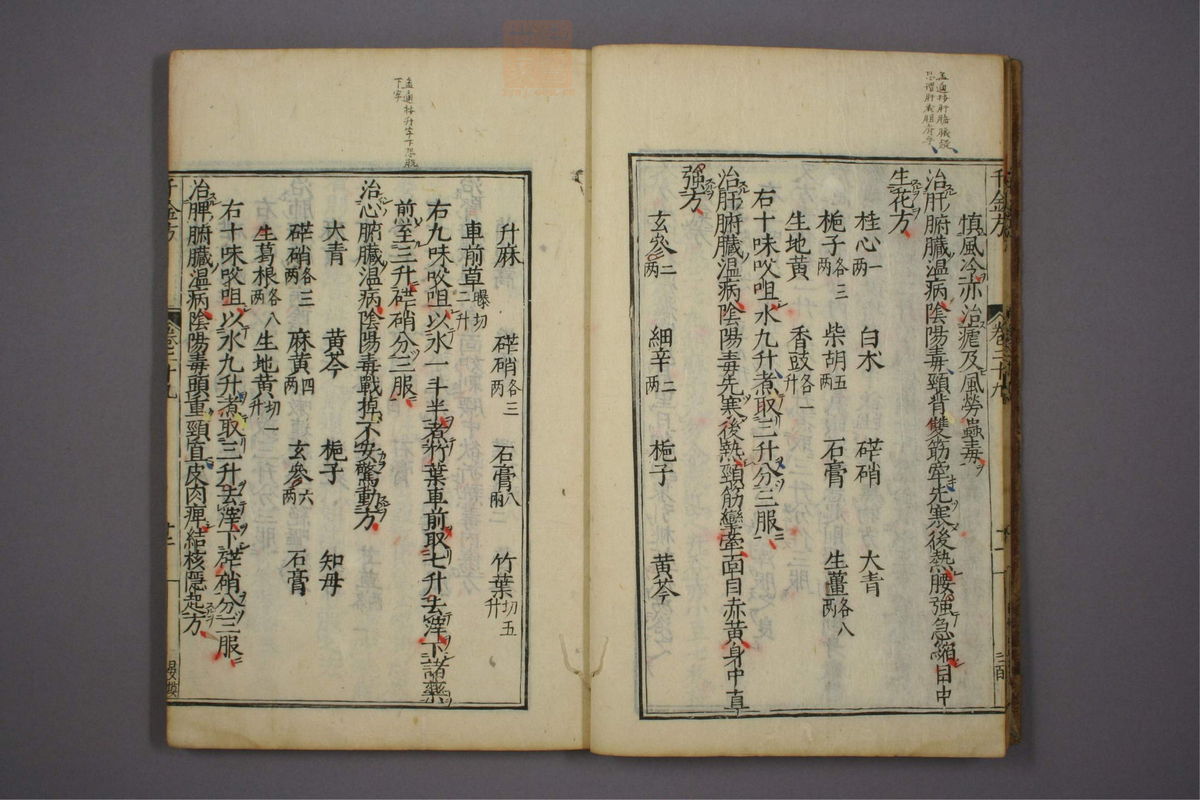 慎風冷亦治瘧及風勞蠱毒
治肝腑臟温病陰陽毒頸背雙筋牽先寒後熱腰強急縮目中
生花方
桂心一兩 白朮 硭硝 大青
梔子各三兩 柴胡五兩 石膏 生薑各八兩
生地黄 香豉各一升
右十味㕮咀水九升煮取三升分三服
治肝腑臟温病陰陽毒先寒後熱頸筋攣牽面目赤黄身中直
強方
玄參二兩 細辛二兩 梔子 黄芩
升麻 硭硝各三兩 石膏八兩 竹葉切五升
車前草曝切二升
右九味㕮咀以水一斗半煮竹葉車前取七升去滓下諸藥
煎至三升硭硝分三服
治心腑臟温病陰陽毒戰掉不安驚動方
大青 黄芩 梔子 知母
硭硝各三兩 麻黄四兩 玄參六兩 石膏
生葛根各八兩 生地黄切一升
右十味㕮咀以水九升煮取三升去滓下硭硝分三服
治脾腑臟温病陰陽毒頭重頸直皮肉痺結核隱起方
千金方 卷二十九